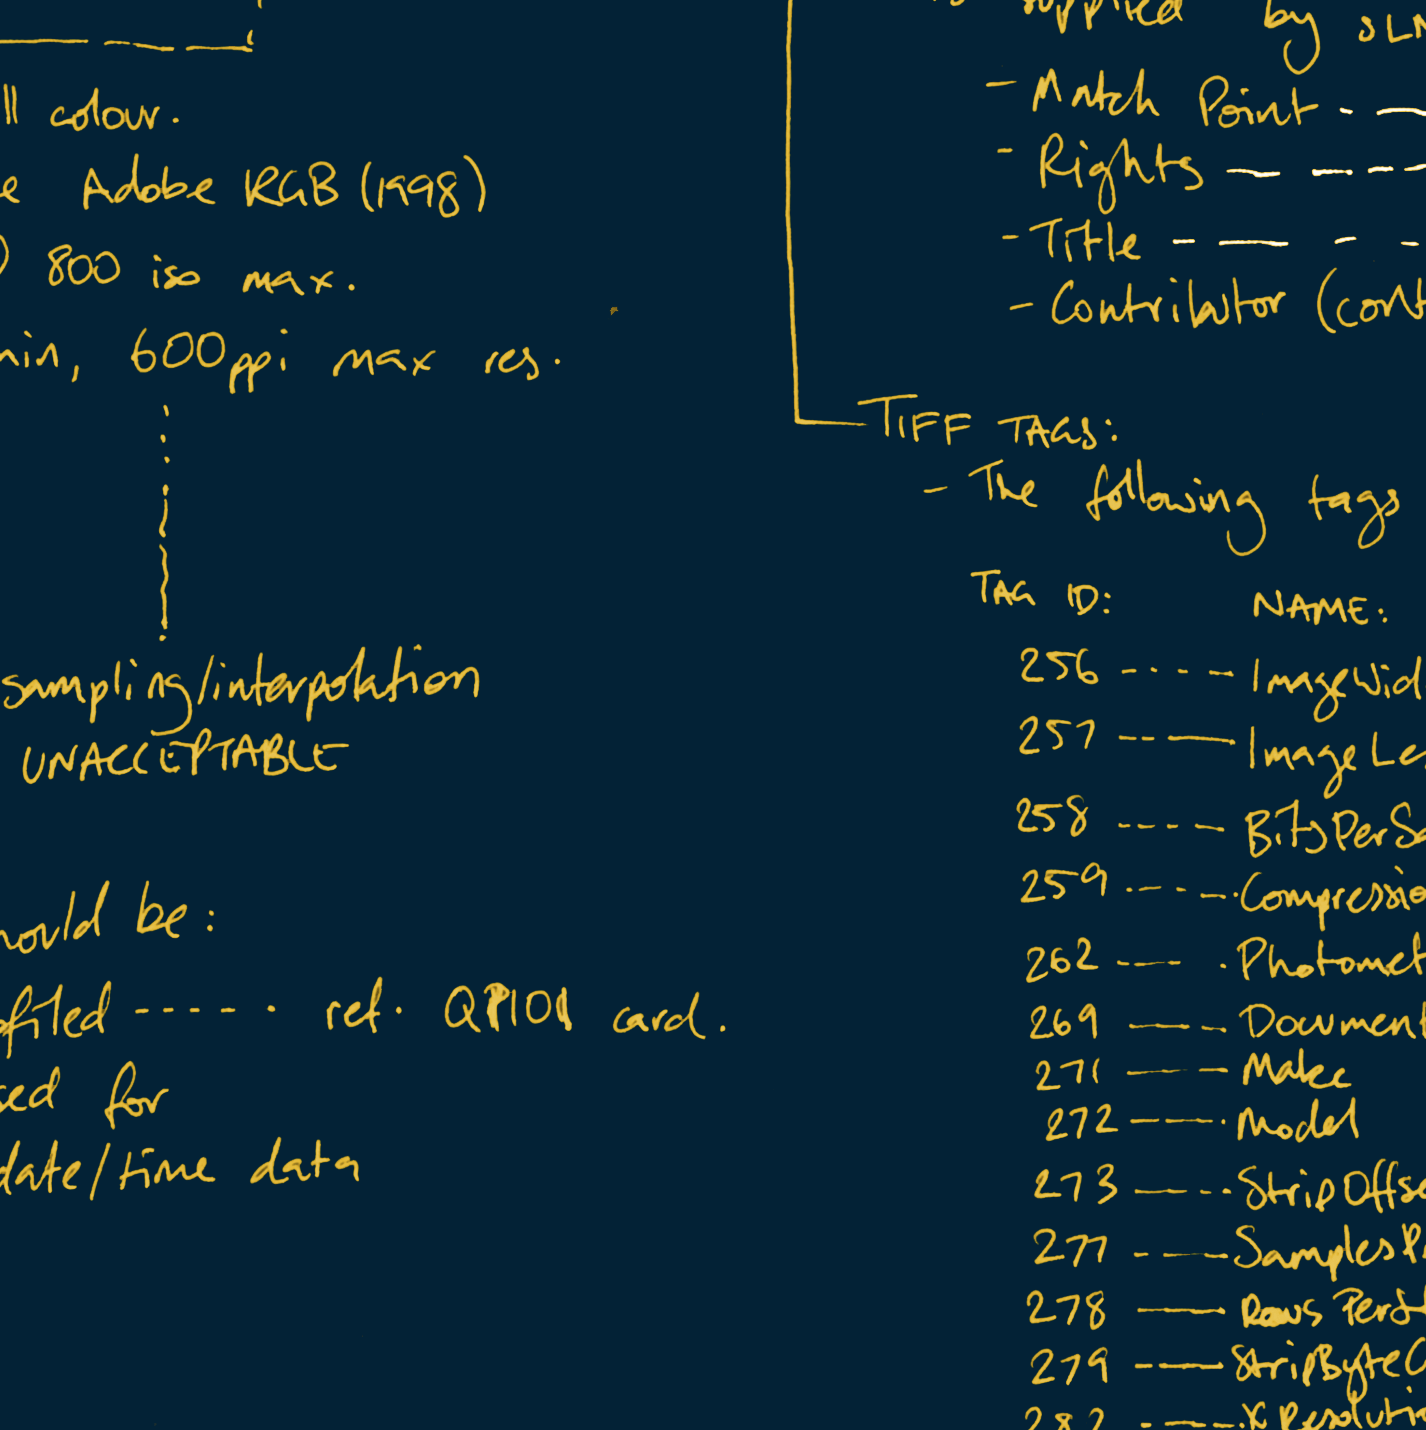 ll colour.
e Adobe RGB (1998)
) 800 iso max.
min, 600ppi max res.
sampling/interpolation
UNACCEPTABLE
hould be:
ofiled ----- · ref. QP101 card.
sed for
date/time data
supplied by SLN
- Match Point - —
- Rights — - - -
- Title - — - -
- Contributor (cont
TIFF TAGS:
- The following tags
TAG ID: NAME:
256 - - - - ImageWid
257 -- — ImageLe
258 - - - - BitsPerSa
259 - - - - Compressio
262 --- · Photomet
269 — - - Document
271 — - - Make
272 — - - · Model
273 — - - - StripOffse
277 - - — SamplesP
278 — RowsPerSt
279 - — StripByteC
282 - - — · XResolutio